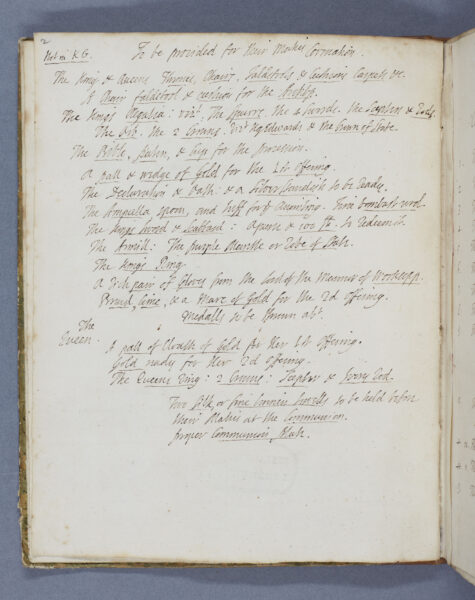 2
Not in K.G.
To be provided for their Ma:ties Coronation.
The King & Queens Thrones, Chairs, Faldstools & Cushions Carpets &c.
A Chair faldstool & cushion for the Archbp.
The Kings Regalia: viz:t, The Spurrs. the 4 Swords. the Scepters & Rods.
The Orb. the 2 Crowns. viz:t Kg Edwards & the Crown of State.
The Bible, Paten, & for the procession.
A pall & wedge of Gold for the 1st Offering.
The Declaration & Oath: & a Silver Standish to be ready.
The Ampulla Spoon, and stuff for ye Anointing.
The Kings Sword & Scabbard: A purse & 100 sh: to redeem it.
The Armill: The purple Mantle or Robe of State.
The Kings Ring.
A Rich pair of Gloves from the Lord of the Mannor of Worksop.
Bread, Wine, & a Marc of Gold for the 2d Offering.
Medalls to be thrown abt.
The
Queen.
A pall of Cloath of Gold for Her 1st Offering.
Gold ready for Her 2d Offering.
The Queens Ring: 2 Crowns: Scepter & Ivory Rod.
Two Silk, or fine Linnen Towells to be held before
their Ma:ties at the Communion.
proper Communion Plate.